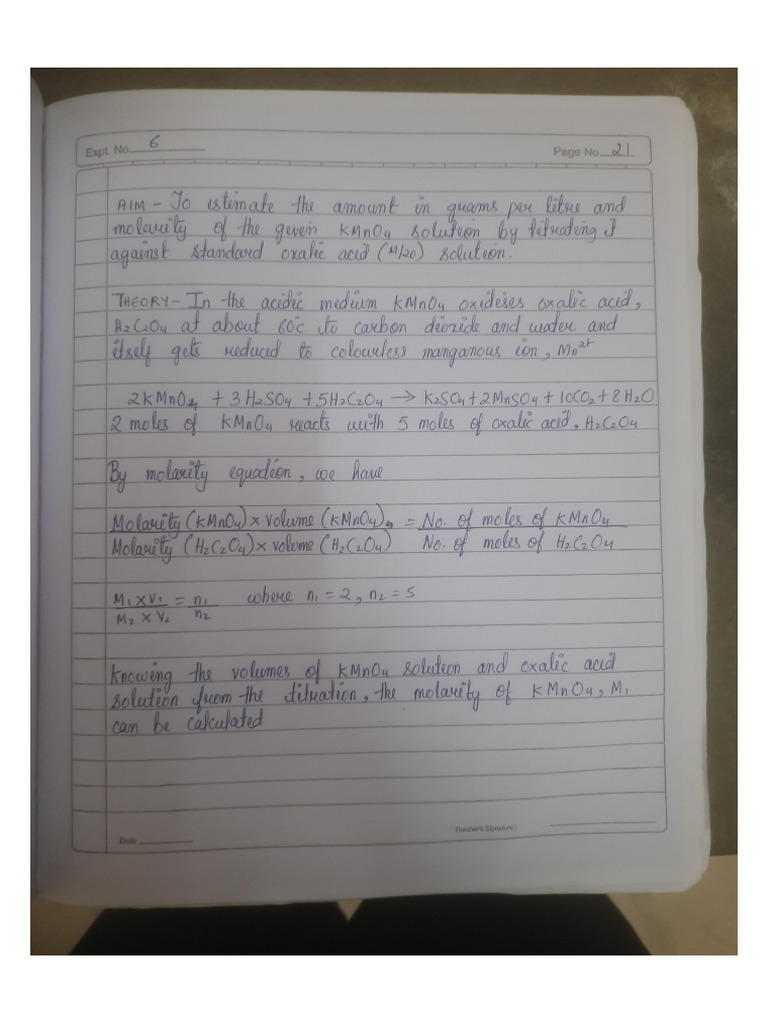 Expt. No. 6
Page No. 21
AIM - To estimate the amount in grams per litre and
molarity of the given KMnO4 solution by titrating it
against standard oxalic acid (M/20) solution.
THEORY - In the acidic medium KMnO4 oxidises oxalic acid,
H2C2O4 at about 60°c to carbon dioxide and water and
itself gets reduced to colourless manganous ion, Mn2+
2KMnO4 + 3H2SO4 + 5H2C2O4 → K2SO4 + 2MnSO4 + 10CO2 + 8H2O
2 moles of KMnO4 reacts with 5 moles of oxalic acid, H2C2O4
By molarity equation, we have
Molarity (KMnO4) × volume (KMnO4) = No. of moles of KMnO4
Molarity (H2C2O4) × volume (H2C2O4) No. of moles of H2C2O4
M1 × V1 = n1 where n1 = 2, n2 = 5
M2 × V2 n2
Knowing the volumes of KMnO4 solution and oxalic acid
solution from the titration, the molarity of KMnO4, M1
can be calculated
Teacher's Signature :
Date